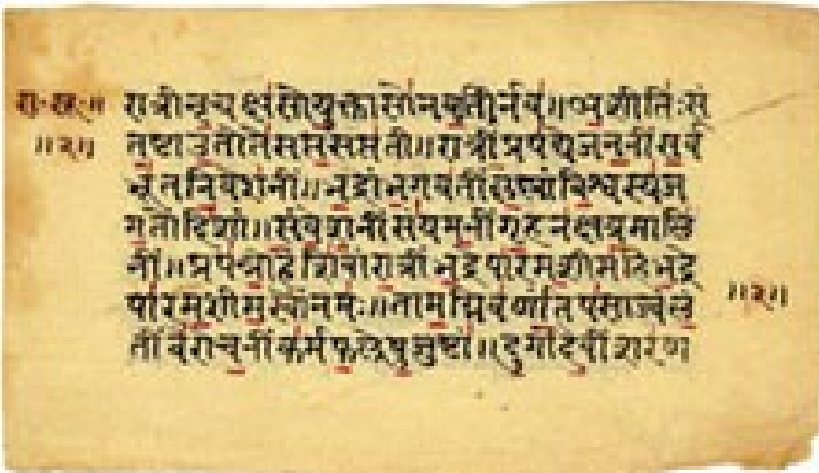 रा॰सू॰॥ रात्रीनृचक्षसोयुक्तासोनवतिर्नव॥अशीतिःसं
॥२॥ त्वष्टाउतोतेसप्तसप्ततीः॥रात्रींप्रपद्येजननींसर्व
भूतनिवेशनीं॥भद्रांभगवतींकृष्णांविश्वस्यज
गतोनिशां॥संवेशनींसंयमनींग्रहनक्षत्रमालि
नीं॥प्रपन्नोहंशिवांरात्रींभद्रेपारमशीमहिभद्रे
पारमशीमह्योंनमः॥तामग्निवर्णांतपसाज्वलं ॥२॥
तींवैरोचनींकर्मफलेषुजुष्टां॥दुर्गांदेवींशरण